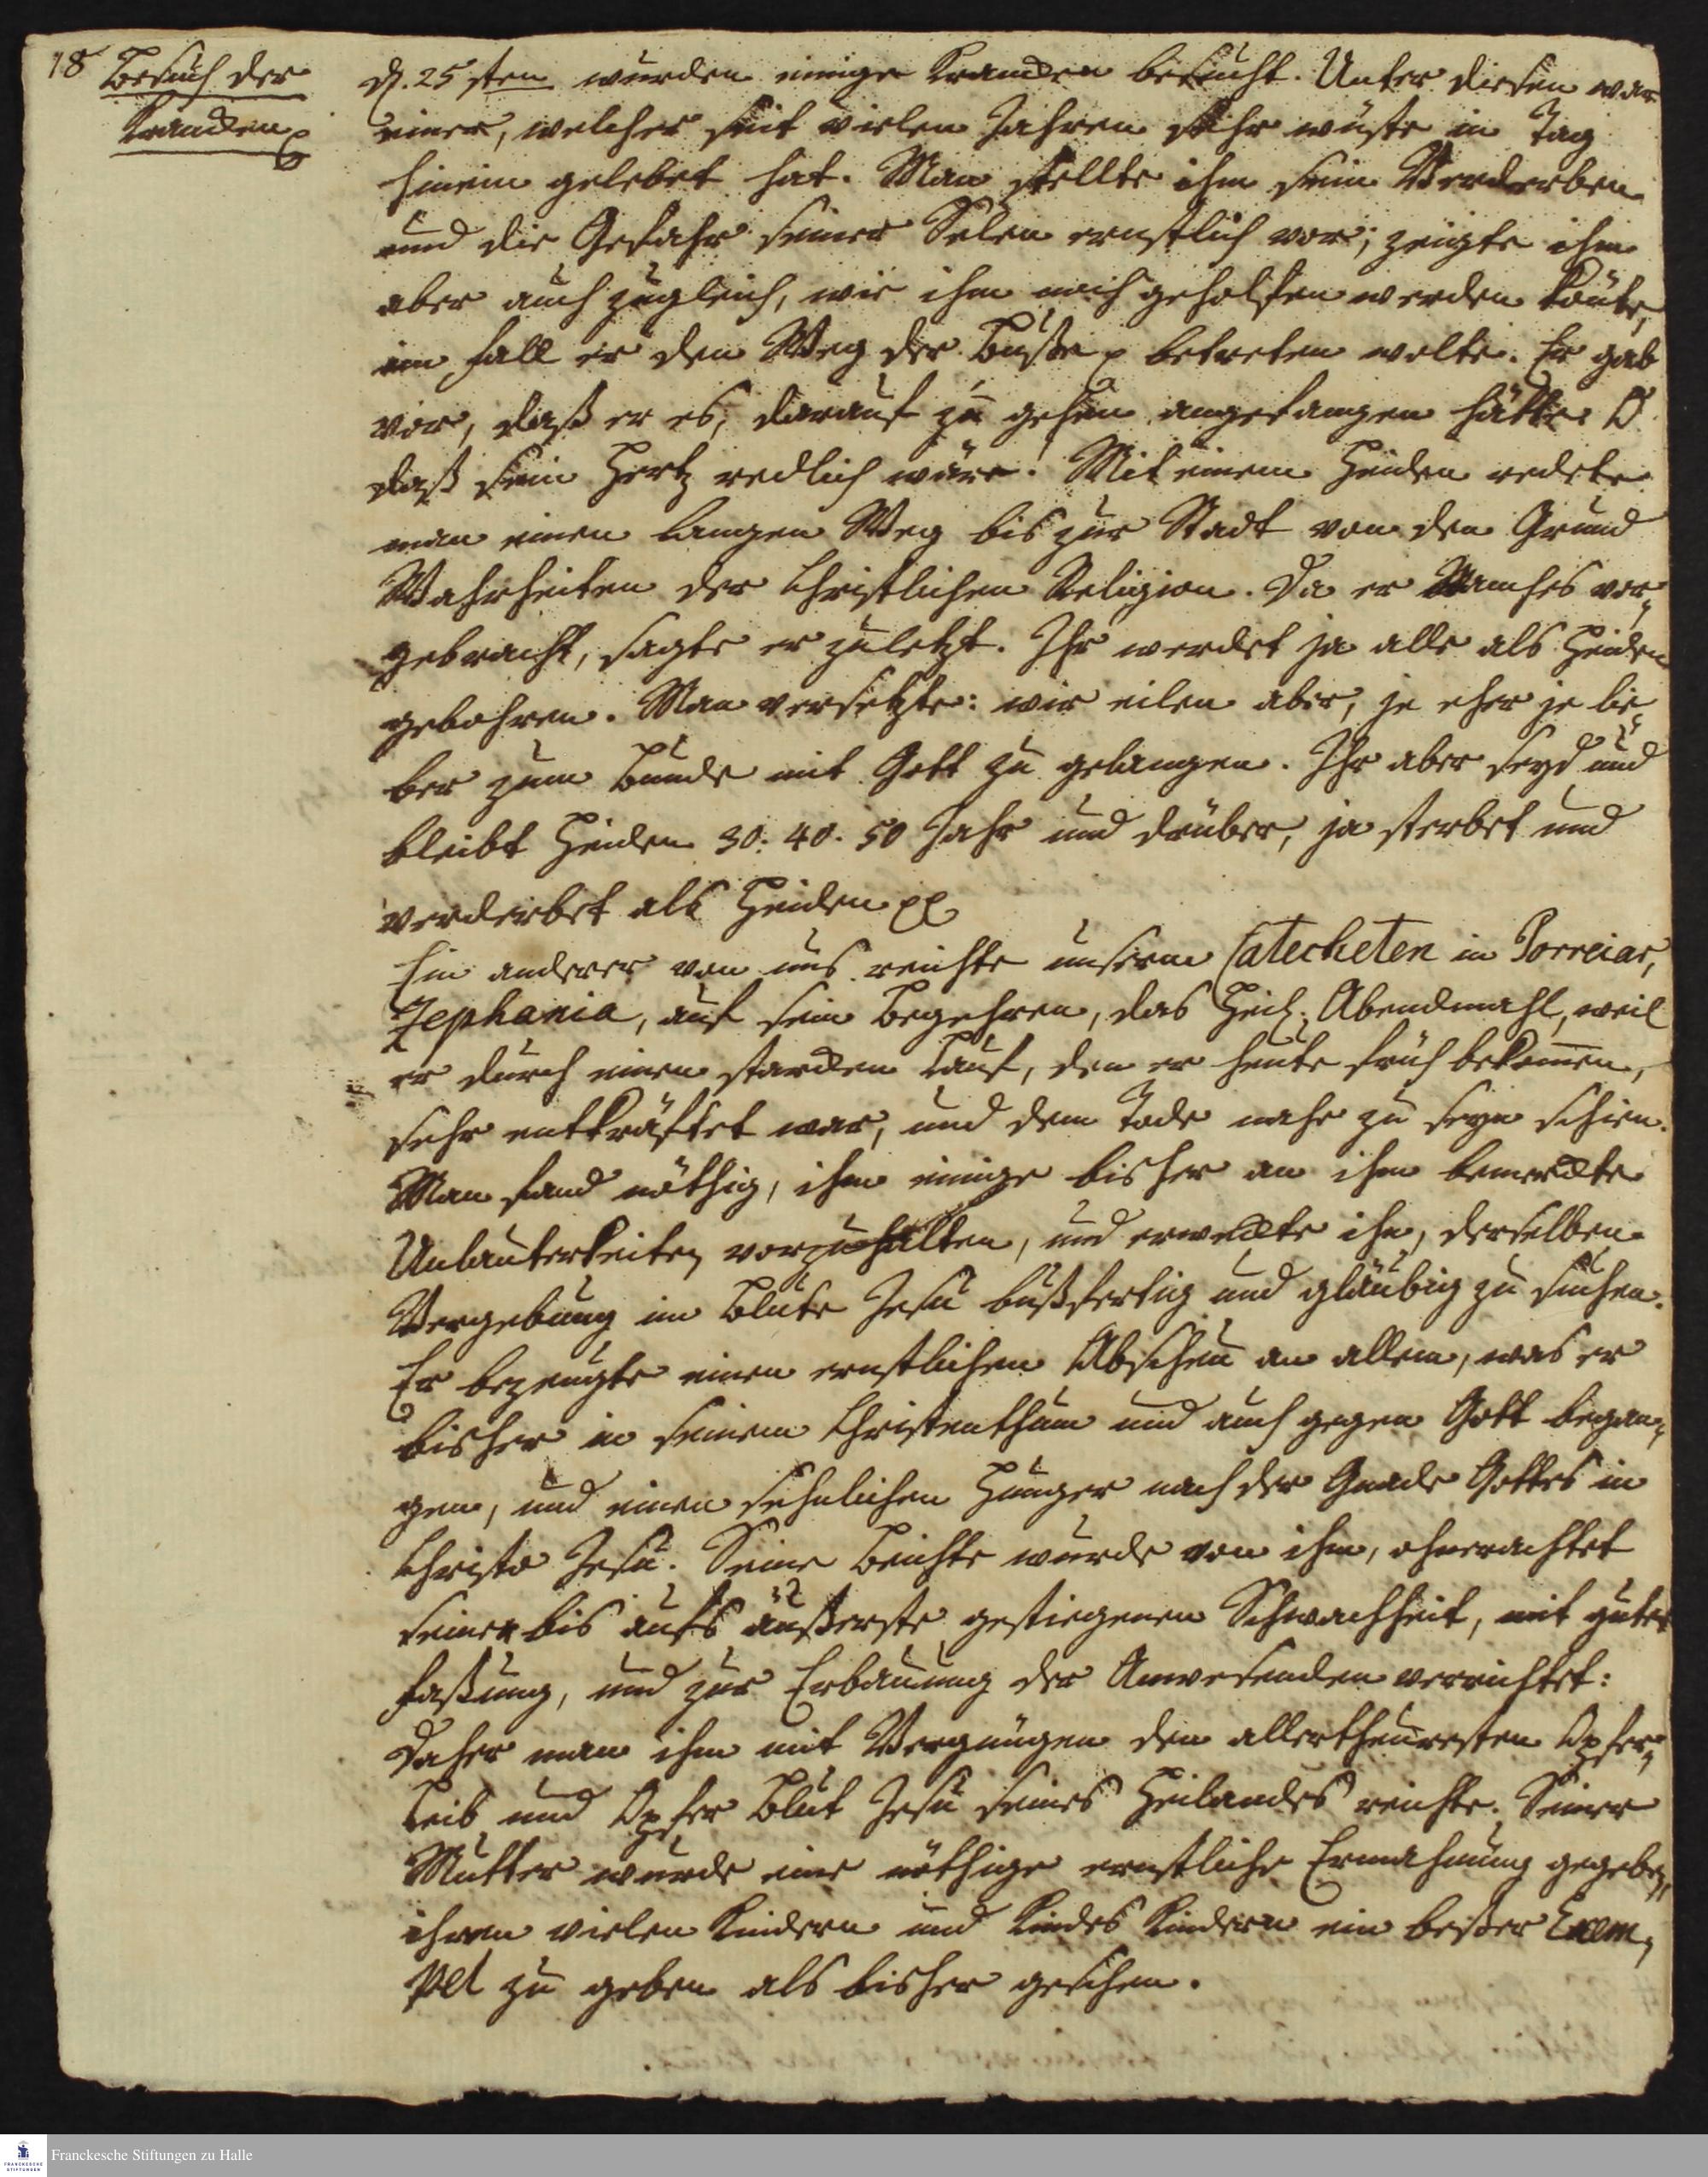 18
Besuch der
Krancken p
d. 25sten wurden einige Krancken besucht. Unter diesen war
einer, welcher seit vielen Jahren sehr wüste in Tag
hinein gelebet hat. Man stellte ihm sein Verderben
und die Gefahr seiner Selen ernstlich vor; zeigte ihm
aber auch zugleich, wie ihm noch geholffen werden könte,
im fall er den Weg der Buße p betreten wolte. Er gab
vor, daß er es, darauf zu gehen angefangen hätte. O
daß sein Hertz redlich wäre! Mit einem Heiden redete
man einen langen Weg bis zur Stadt von den Grund
Wahrheiten der Christlichen Religion. Da er Manches vor„
gebracht, sagte er zuletzt. Ihr werdet ja alle als Heiden
gebohren. Man versetzte: wir eilen aber, je eher je lie
ber zum Bunde mit Gott zu gelangen. Ihr aber seyd und
bleibt Heiden 30. 40. 50 Jahr und drüber, ja sterbet und
verderbet als Heiden pp
Ein anderer von uns reichte unserm Catecheten in Porreiar,
Zephania, auf sein Begehren, das Heil. Abendmahl, weil
er durch einen starcken Lauf, den er heute früh bekom̄en,
sehr entkräftet war, und dem Tode nahe zu seyn schien.
Man fand nöthig, ihm einige bisher an ihm bemerckte
Unlauterkeiten vorzuhalten, und erweckte ihn, derselben
Vergebung im Blute Jesu bußfertig und gläubig zu suchen.
Er bezeugte einen ernstlichen Abscheu an allem, was er
bisher in seinem Christenthum und auch gegen Gott began„
gen, und einen sehnlichen Hunger nach der Gnade Gottes in
Christo Jesu. Seine Beichte wurde von ihm, ohnerachtet
seiner bis aufs äußerste gestiegenen Schwachheit, mit guter
Faßung, und zur Erbauung der Anwesenden verrichtet:
Daher man ihm mit Vergnügen den allertheuresten Opfer„
Leib und Opfer Blut Jesu seines Heilandes reichte. Seiner
Mutter wurde eine nöthige ernstliche Ermahnung gegeben,
ihren vielen Kindern und Kindes Kindern ein beßer Exem„
pel zu geben als bisher geschehen.
Franckesche Stiftungen zu Halle
FRANCKESCHE
STIFTUNGEN